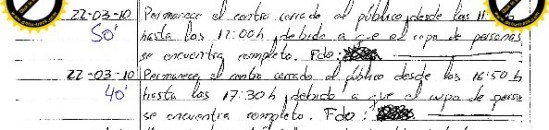 22-03-10 Permanece el centro cerrado al público, desde las 11:
50' hasta las 12:00h, debido a que el cupo de personas
se encuentra completo. Fdo:
22-03-10 Permanece, el centro cerrado al público desde las 16:50 h
40' hasta las 17:30h, debido a que el cupo de perso
se encuentra completo. Fdo: